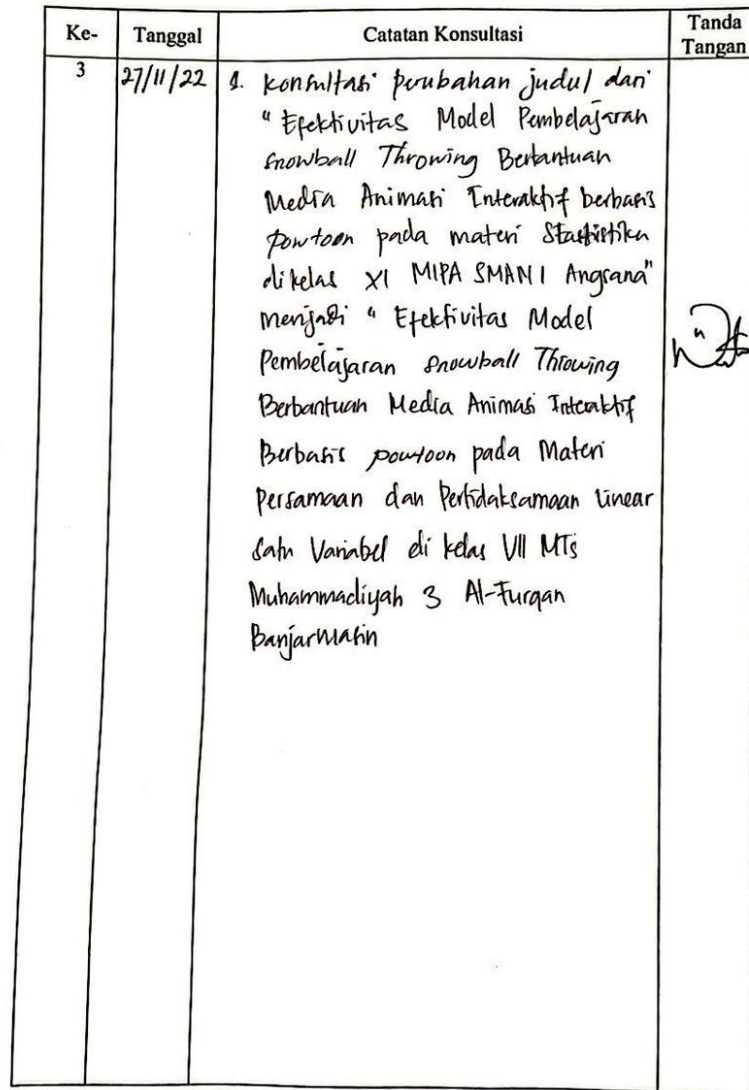 Ke- Tanggal Catatan Konsultasi Tanda Tangan
3 27/11/22 1. Konsultasi perubahan judul dari
"Efektivitas Model Pembelajaran
Snowball Throwing Berbantuan
Media Animasi Interaktif berbasis
Powtoon pada materi Statistika
di kelas XI MIPA SMAN 1 Angsana"
menjadi "Efektivitas Model
Pembelajaran Snowball Throwing
Berbantuan Media Animasi Interaktif
Berbasis powtoon pada Materi
Persamaan dan Pertidaksamaan Linear
Satu Variabel di kelas VII MTs
Muhammadiyah 3 Al-Furqan
Banjarmasin